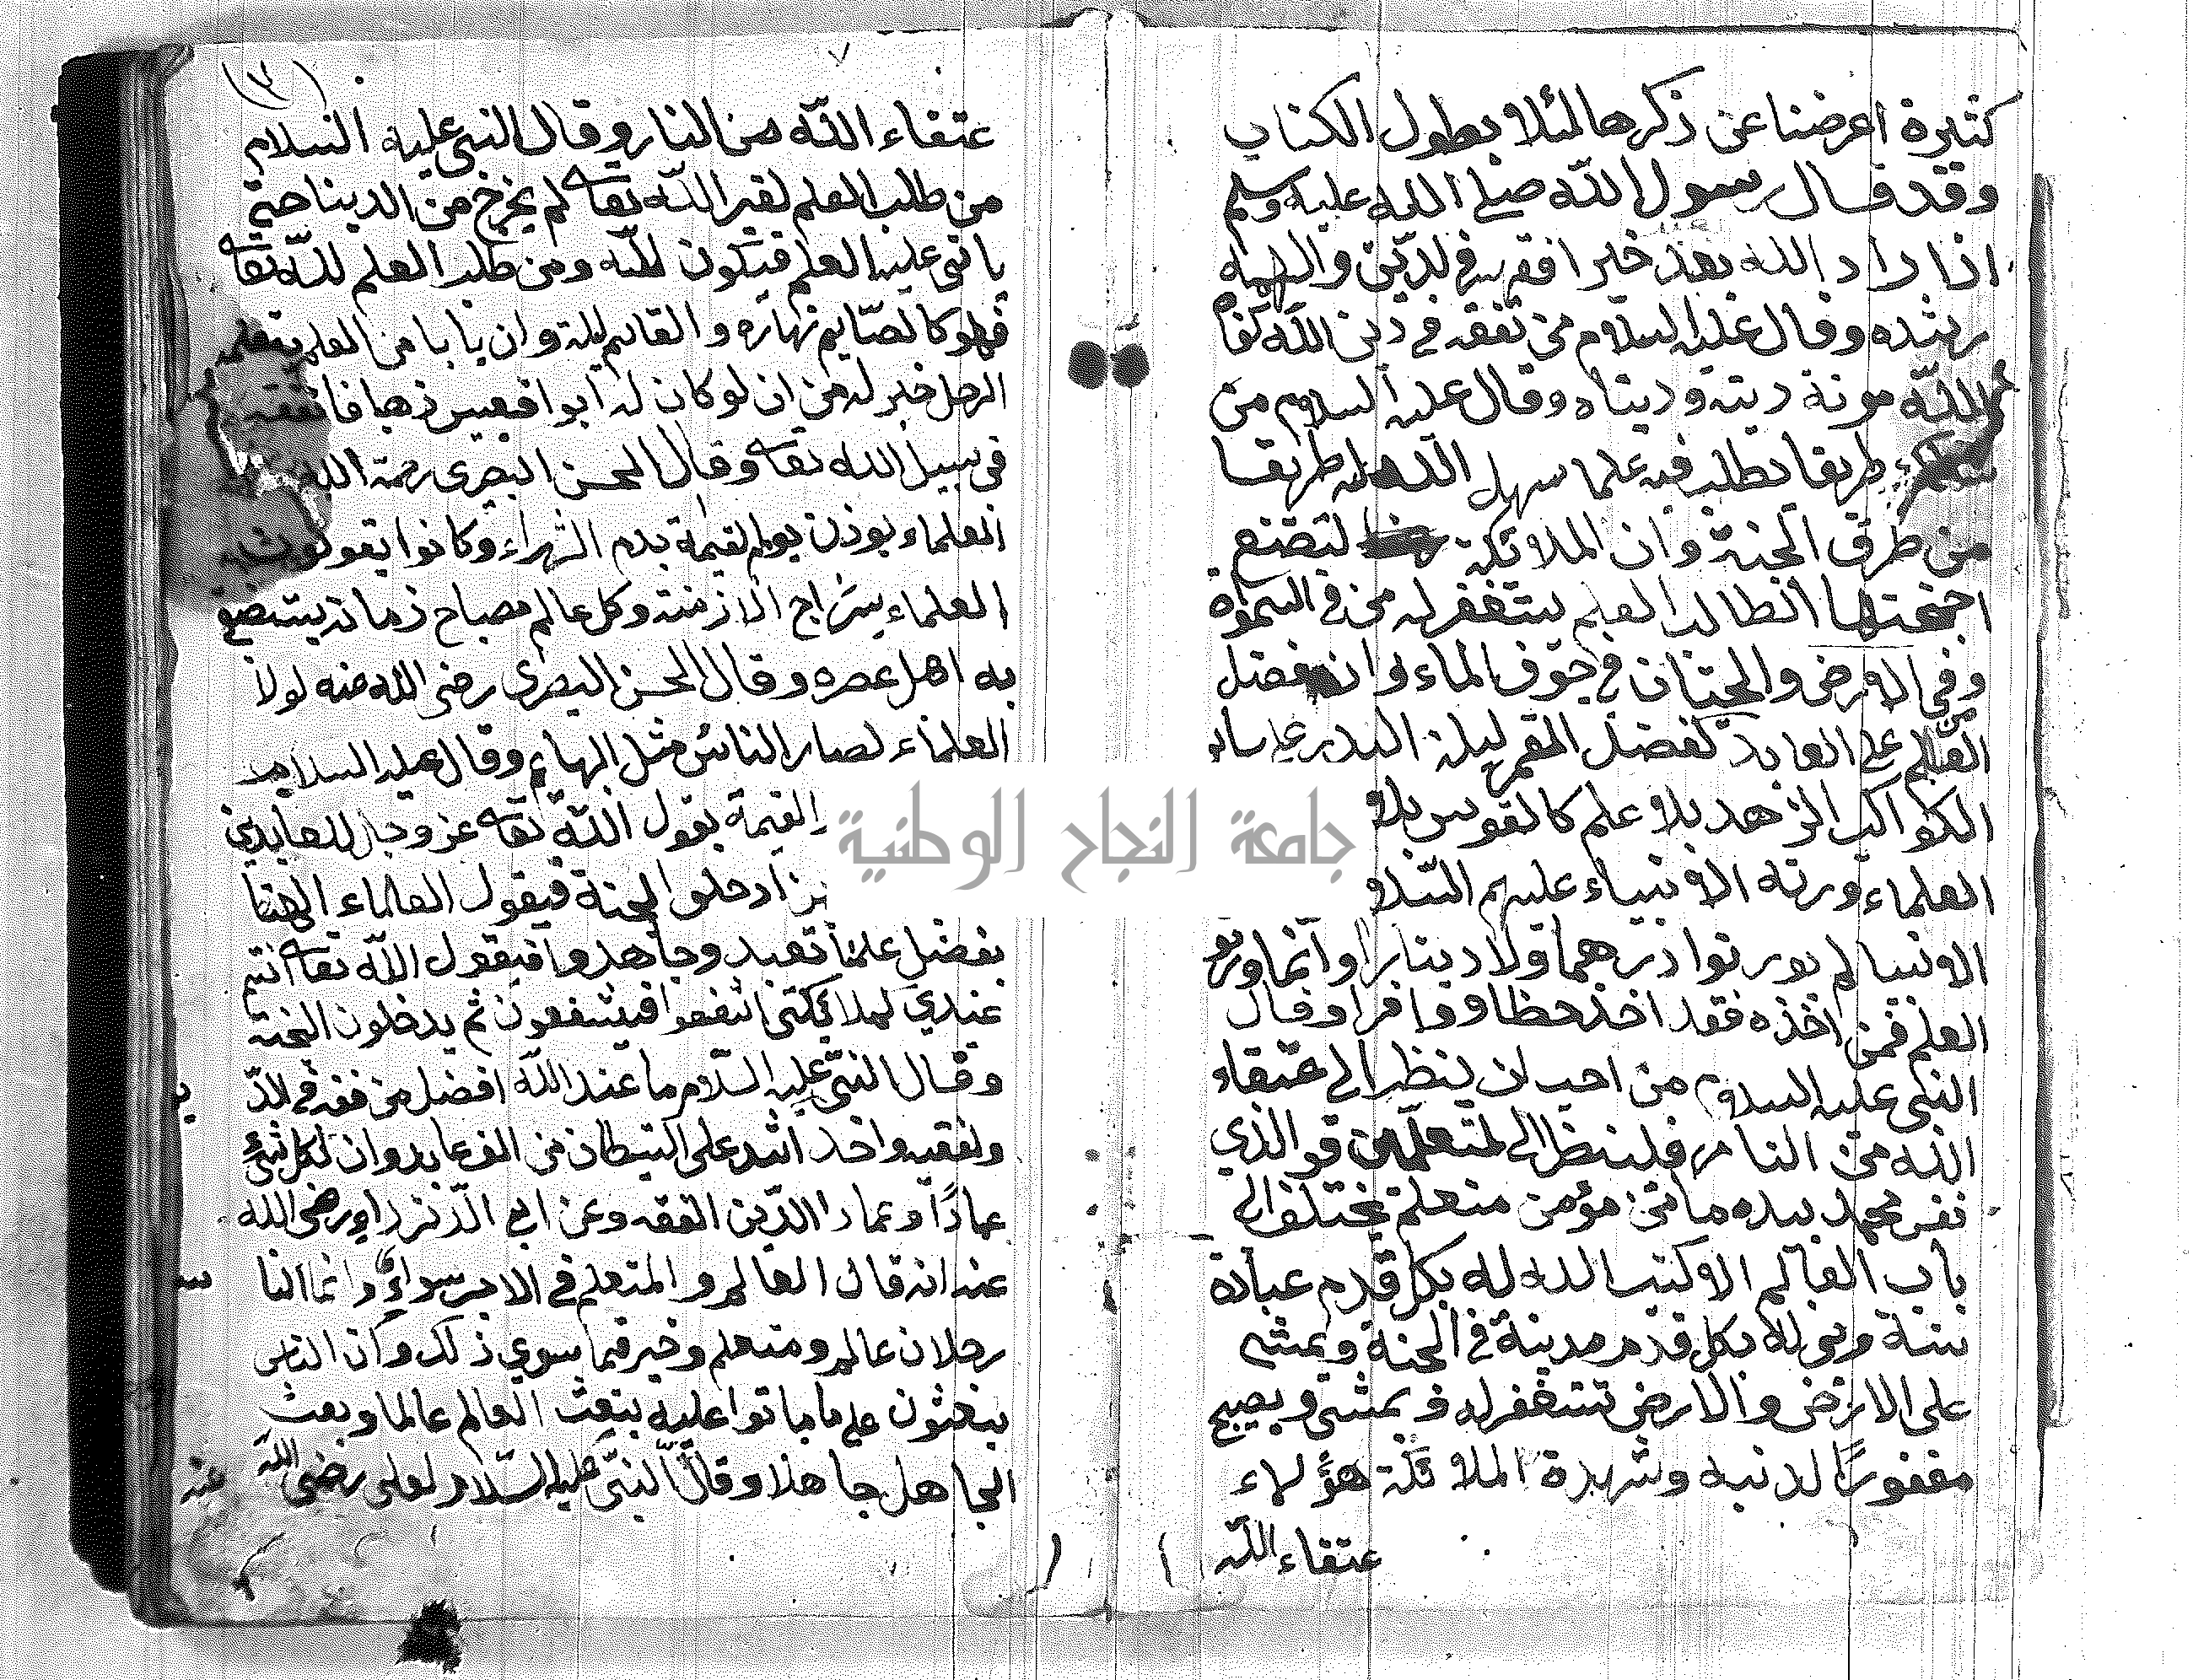 كثيرة اعرضنا عن ذكرها لئلا يطول الكتاب
وقد قال رسول الله صلى الله عليه وسلم
اذا راد الله بعبد خيرا فقهه في الدين والهمه
رشده وقال عليه السلام من تفقه في دين الله كفا
الله مونة دينه ودنياه وقال عليه السلام من
طريقا يطلب فيه علما سهل الله له طريقا
من طرق الجنة وان الملائكة لتضع
اجنحتها الطالب العلم يستغفر له من في السموة
وفي الارض والحيتان في جوف الماء وان فضل
العالم على العابد كفضل القمر ليلة البدر على ساير
الكواكب الزهد بلا علم كالقوس بلا
العلماء ورثه الانبياء عليهم السلا
الانبيا لم يورثوا درهما ولا دينارا وانما ورثو
العلم فمن اخذه فقد اخذ حظا وافرا وقال
النبي عليه السلام من احب ان ينظر الى عتقاء
الله من النار فلينظر الى المتعلمين فو الذي
نفس محمد بيده ما من مؤمن متعلم يختلف الى
باب العالم الا كتب الله له بكل قدم عبادة
سنة وبنى له بكل قدم مدينة في الجنة ويمشي
على الارض والارض تستغفر له ويمشي ويصبح
مغفورا لذنبه وشهدة الملائكة هؤلاء
عتقاء الله
(٣)
٧
عتقاء الله من النار وقال النبي عليه السلام
من طلب العلم لغير الله تعا لم يخرج من الدينا حتى
ياتي عليه العلم فيكون لله ومن طلب العلم لله تعا
فهو كالصايم نهاره والقايم ليله وان بابا من العلم يتعلمه
الرجل خير له من ان لو كان له ابو قبيس ذهبا فانفقه
في سبيل الله تعا وقال الحسن البصري رحمة الله
العلماء يوذن يوم القيمة بدم الشهداء وكانوا يقولون
العلماء سراج الازمنة وكل عالم مصباح زمانه يستضئ
به اهل عصره وقال الحسن البصري رضى الله عنه لولا
العلماء لصار الناس مثل البهايم وقال عليه السلام
القيمة يقول الله تعا عز وجل للعابدين
ادخلوا الجنة فيقول العلماء الهنا
بفضل علمنا تعبد وجاهدوا فيقول الله تعا انتم
عندي كملائكتي اشفعوا فيشفعون ثم يدخلون الجنة
وقال النبي عليه السلام ما عند الله افضل من فقه في الدين
ولفقيه واحد اشد على الشيطان من الف عابد وان لكل شئ
عمادا وعماد الدين الفقه وعن ابي الدرداء رضى الله
عنه انه قال العالم والمتعلم في الاجر سواء وانما الناس
رجلان عالم ومتعلم وخير فيما سوي ذلك وان الناس
يبعثون على ما ماتوا عليه يبعث العالم عالما ويعث
الجاهل جاهلا وقال النبي عليه السلام لعلى رضى الله عنه
جامعة النجاح الوطنية